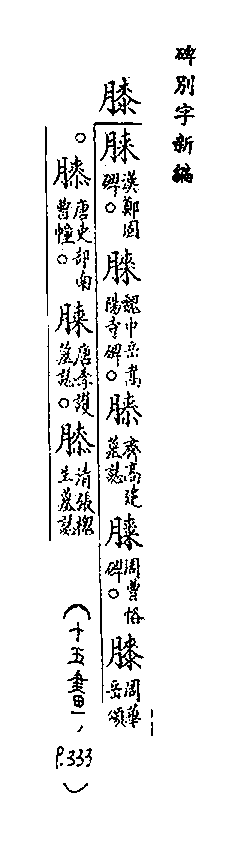 碑別字新編
膝
䐒漢鄭固碑。䐒魏中岳嵩陽寺碑。膝齊高建墓誌 周曹恪碑。膝周華岳頌
。膝唐吏部南曹幢。唐秦護墓誌。膝清張摺生墓誌
(十五畫,P.333)